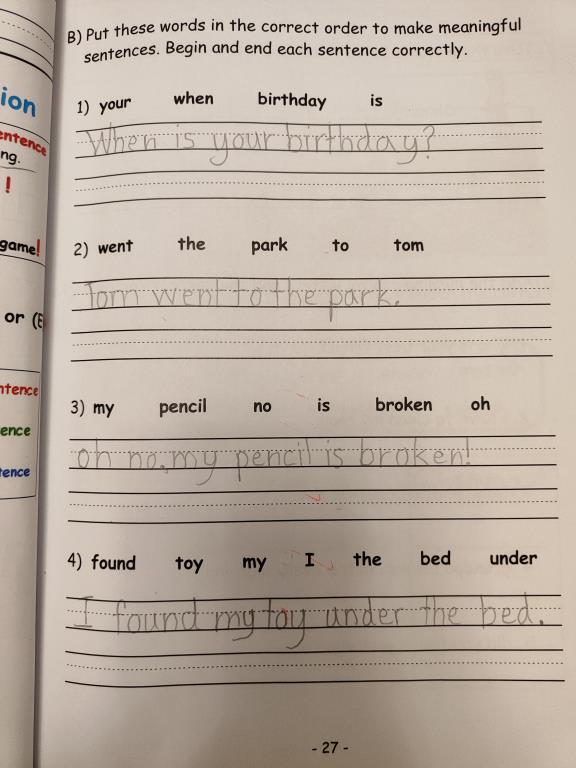 B) Put these words in the correct order to make meaningful
sentences. Begin and end each sentence correctly.
ion
1) your when birthday is
entence
When is your birthday?
ng.
!
game!
2) went the park to tom
Tom went to the park.
or (E
ntence
3) my pencil no is broken oh
ence
oh no, my pencil is broken!
tence
4) found toy my I the bed under
I found my toy under the bed.
- 27 -